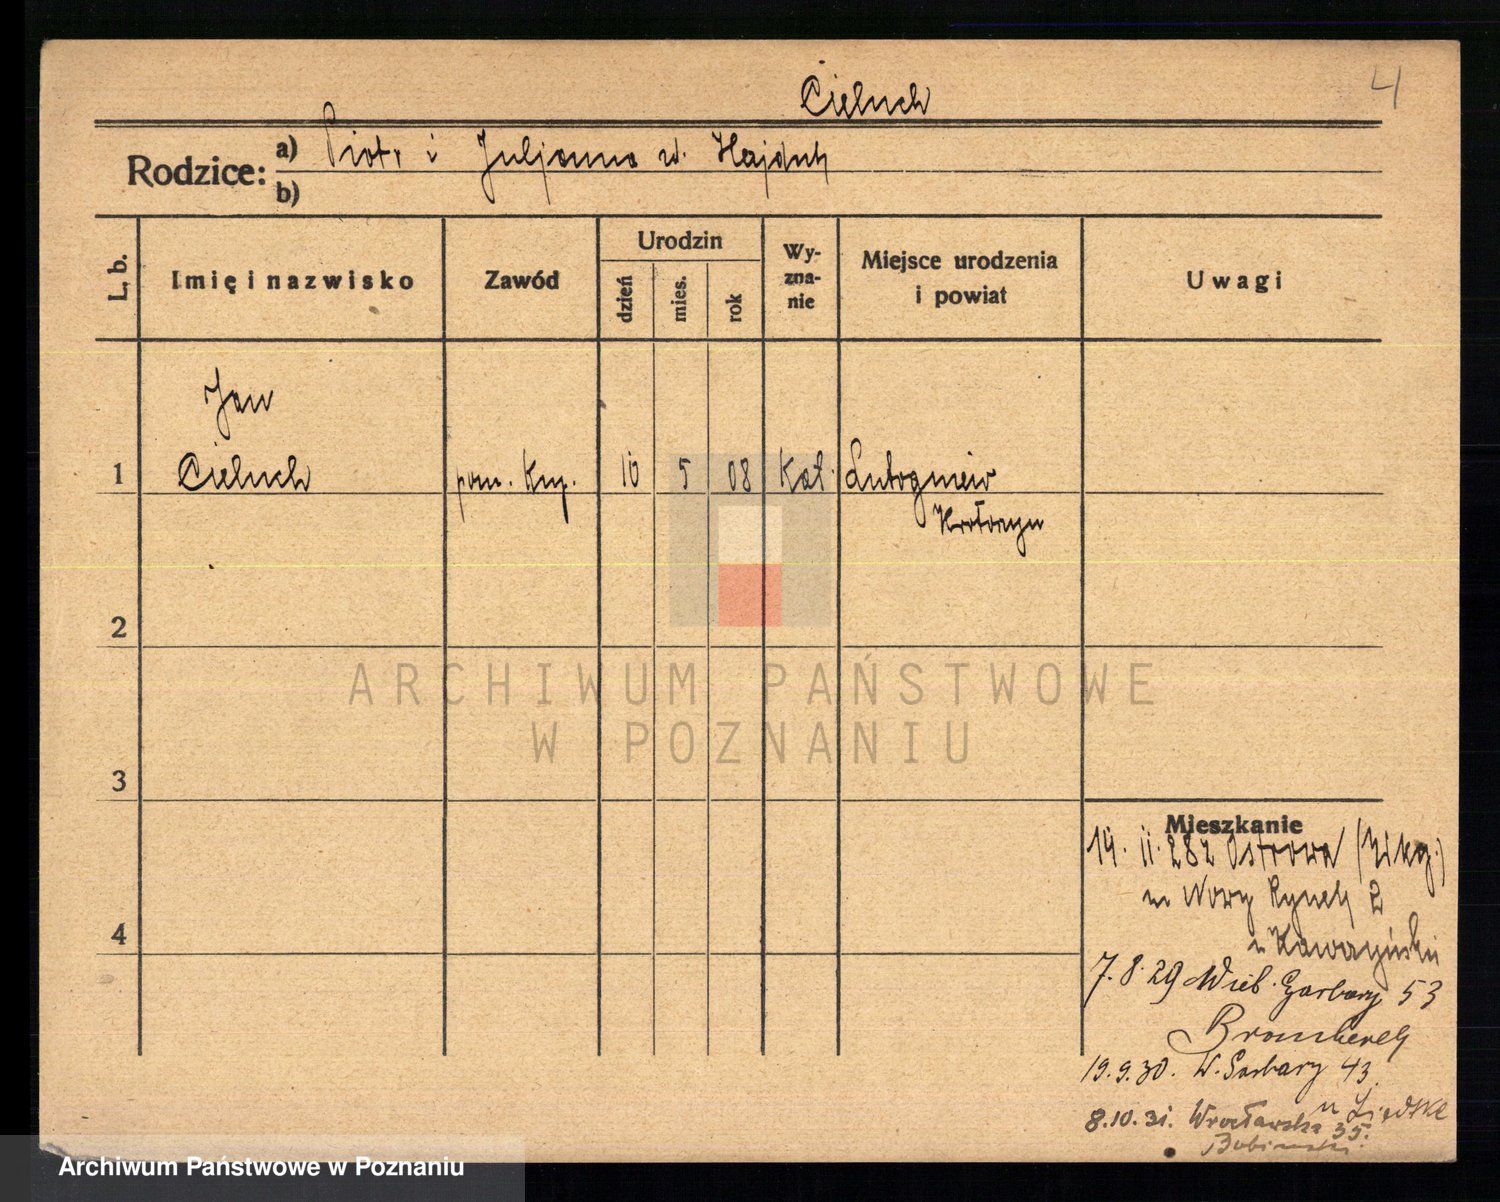 4
Cieluch
Rodzice: a) Piotr i Juljanna ur. Hajduk
b)
L. b. Imię i nazwisko Zawód Urodzin dzień mies. rok Wyznanie Miejsce urodzenia i powiat Uwagi
Jan
1 Cieluch pom. Kup. 10 5 08 Kat. Lutogniew
Krotoszyn
2
ARCHIWUM PAŃSTWOWE
W POZNANIU
3
Mieszkanie
14. 11. 28 z Ostrowa
4
m Nowy Rynek 2
u Kawczyński
7. 8. 29 Wielk. Garbary 53
19. 9. 30. W. Garbary 43
8. 10. 31. Wrocławska 35.
Archiwum Państwowe w Poznaniu